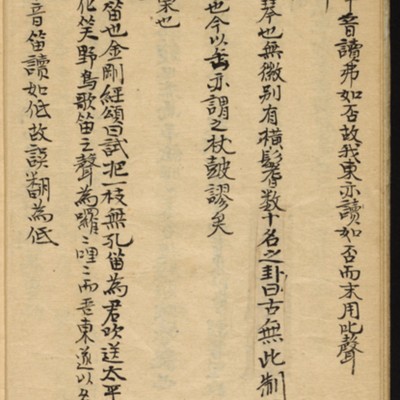 音讀弗如否故我東亦讀如否而末用此聲
琴也無徽別有橫鬐数十名之卦曰古無此制
也今以缶亦謂之杖鼓謬矣
也
笛也金剛經頌曰試把一枝無孔笛為君吹送太平
花笑野鳥歌笛之聲為囉〻哩〻而吾東遂以
音笛讀如低故誤翻為低